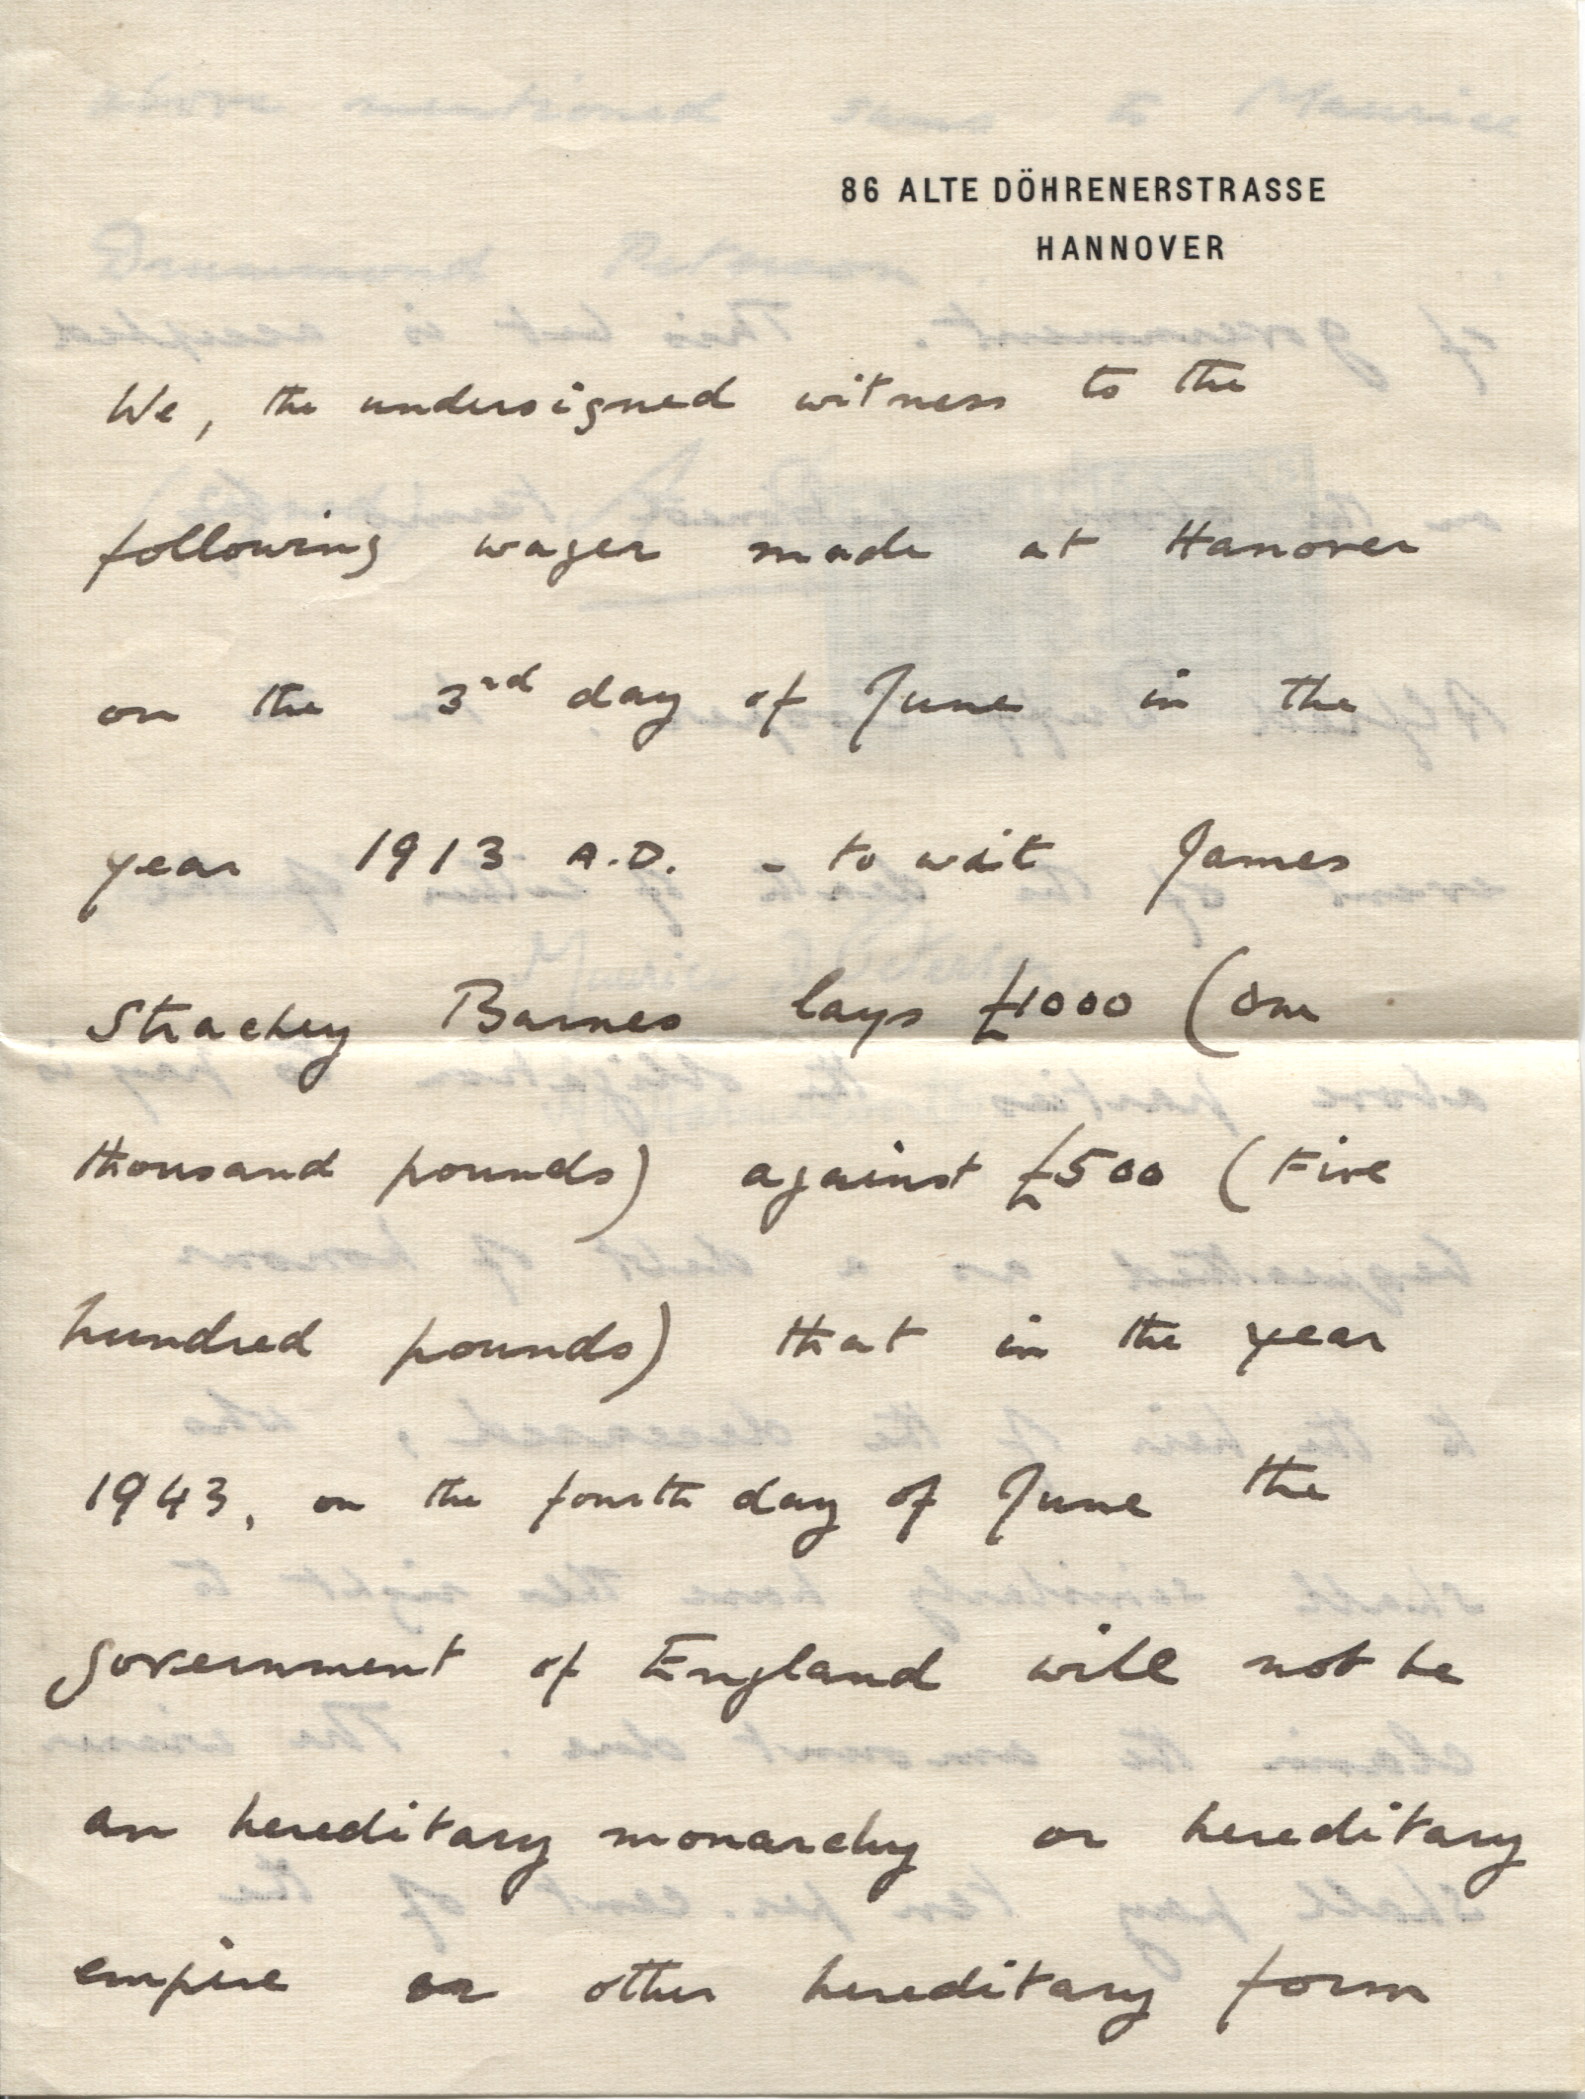 86 ALTE DÖHRENERSTRASSE
HANNOVER
We, the undersigned witness to the
following wager made at Hanover
on the 3rd day of June in the
year 1913 A.D. - to wit James
Strachey Barnes lays £1000 (One
thousand pounds) against £500 (Five
hundred pounds) that in the year
1943, on the fourth day of June the
government of England will not be
an hereditary monarchy or hereditary
empire or other hereditary form